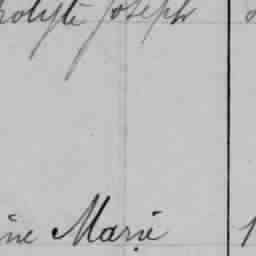 polyte Joseph
ine Marie 1